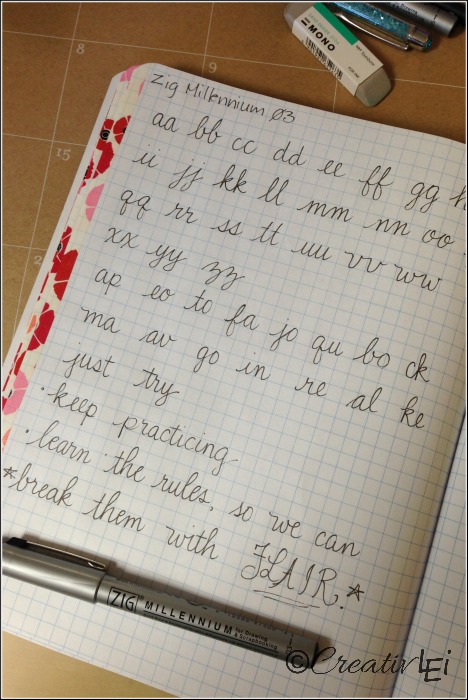 8
9
15
2
MONO
Zig Millennium 03
aa bb cc dd ee ff gg h
ii jj kk ll mm nn oo
qq rr ss tt uu vv ww
xx yy zz
ap eo to fa jo qu bo ck
ma av go in re al ke
just try
·keep practicing
·learn the rules, so we can
*break them with FLAIR.*
ZIG MILLENNIUM for Drawing & Scrapbooking
©CreativLEi